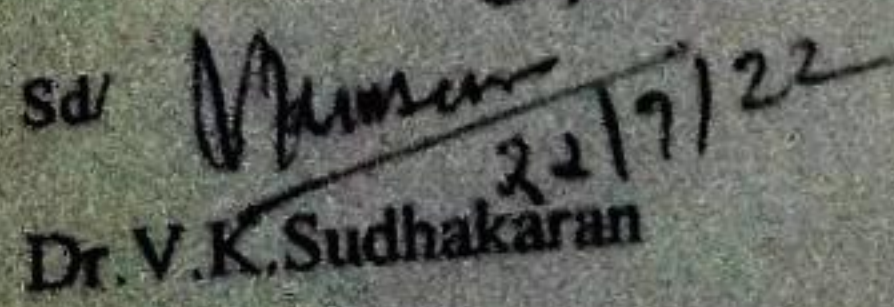 Sd/
22/7/22
Dr.V.K.Sudhakaran